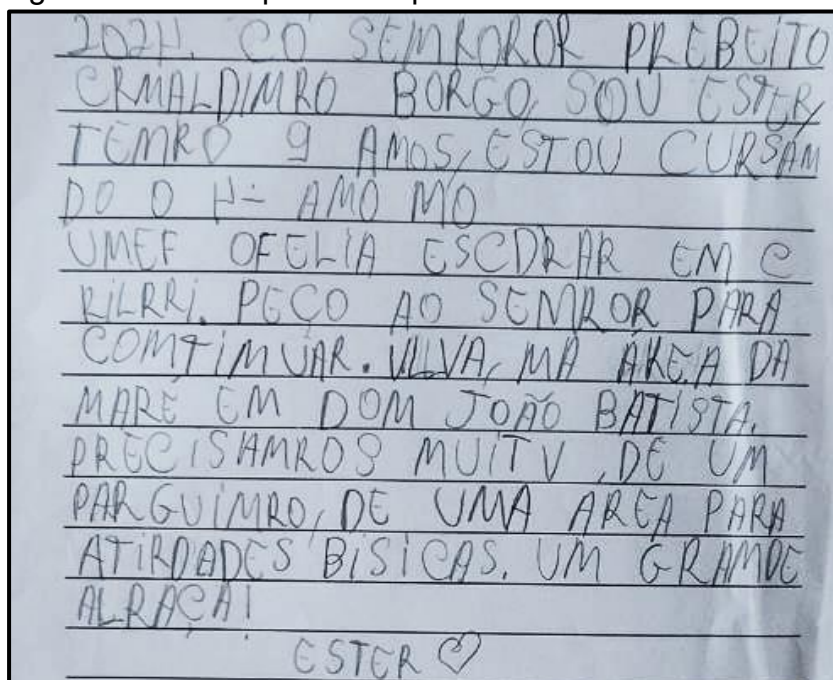 2024. CO SEMROROR PREBEITO
ERMALDIMRO BORGO, SOU ESTER,
TEMRO 9 AMOS, ESTOU CURSAM
DO O 4- AMO MO
UMEF OFELIA ESCDRAR EM C
RILRRI. PEÇO AO SEMROR PARA
COMTIMUAR. VLLVA, MA ÁREA DA
MARÉ EM DOM JOÃO BATISTA.
PRECISAMROS MUITV, DE UM
PARGUIMRO, DE UMA AREA PARA
ATIRDADES BISICAS. UM GRAMDE
ALRAÇA!
ESTER ♡